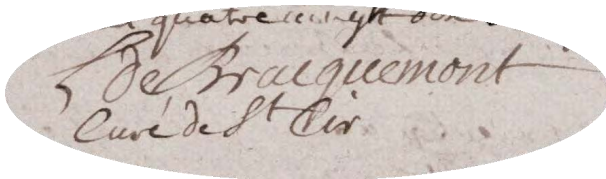 quatre vingtt
De Bracquemont
Curé de St Cir